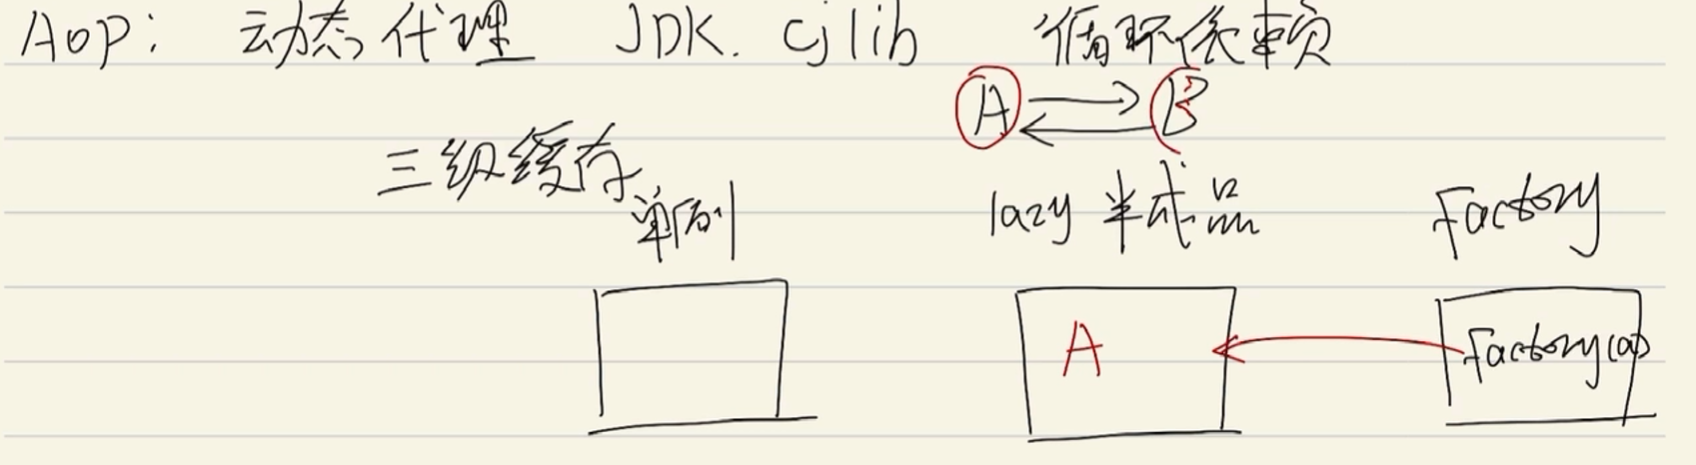 AOP: 动态代理 JDK. cjlib 循环依赖
A B
三级缓存
单例 lazy 半成品 Factory
A Factory(a)